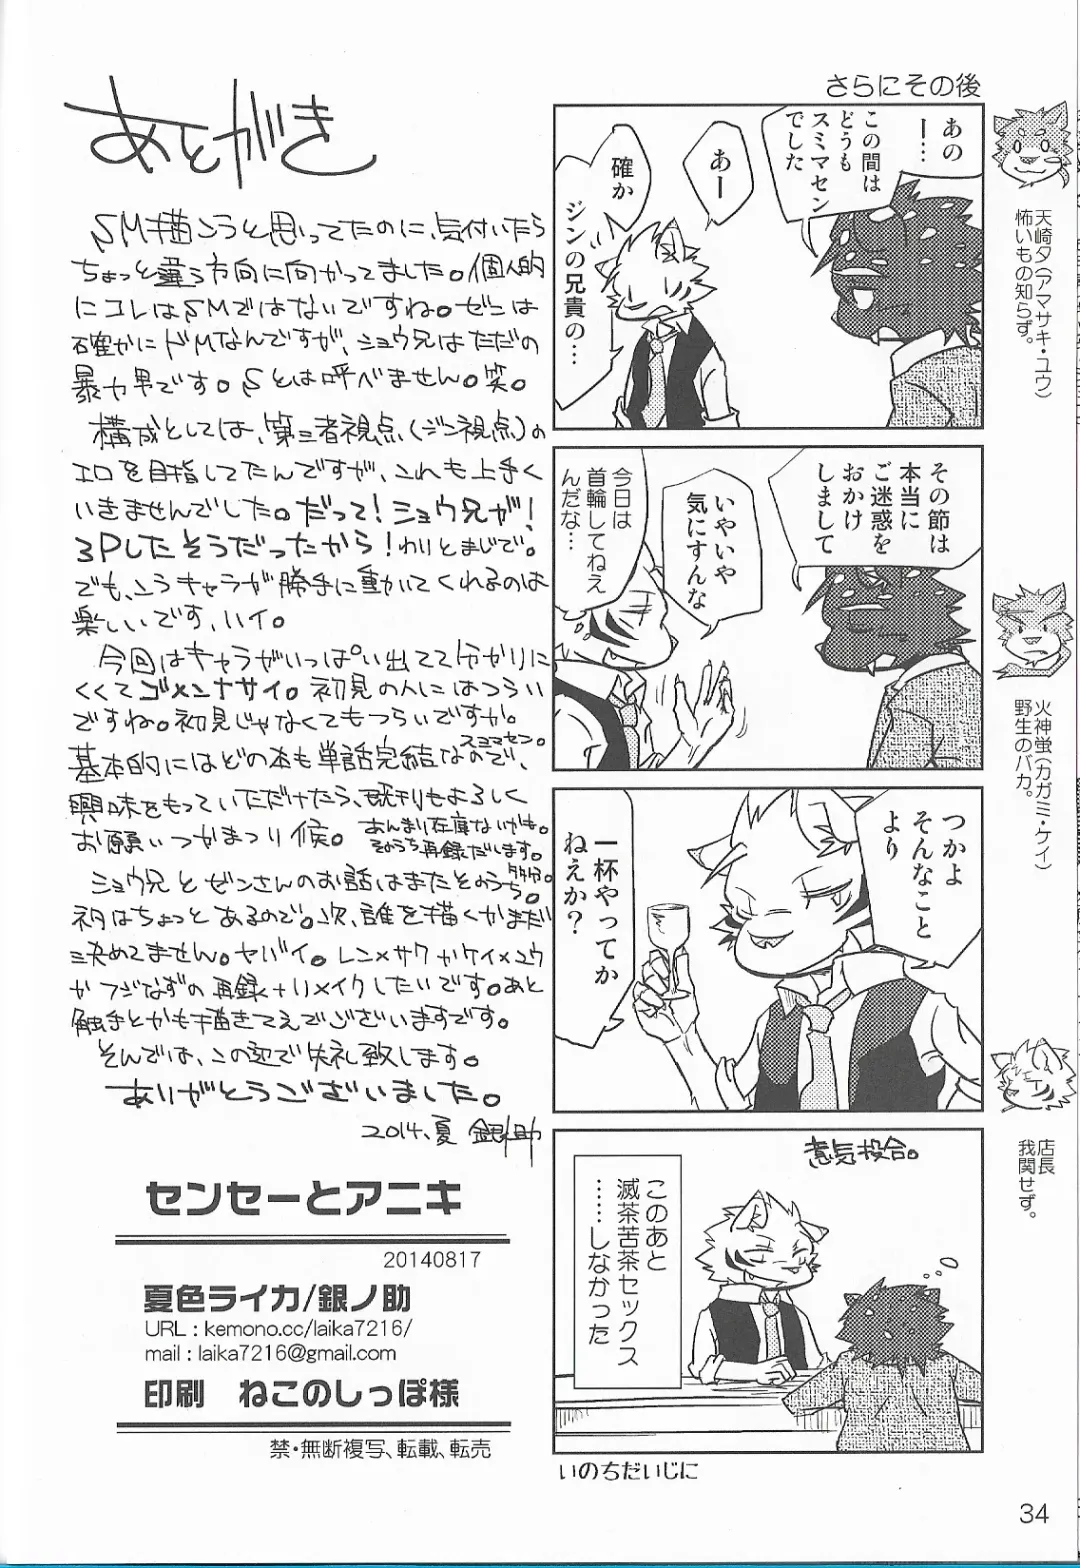 さらにその後
あの
ー…
この間は
どうも
スミマセン
でした
あー
確か
ジンの兄貴の…
その節は
本当に
ご迷惑を
おかけ
しまして
いやいや
気にすんな
今日は
首輪してねえ
んだな…
つかよ
そんなこと
より
一杯やってか
ねえか?
意気投合。
このあと
滅茶苦茶セックス
……しなかった
いのちだいじに
天崎夕(アマサキ・ユウ)
怖いもの知らず。
火神蛍(カガミ・ケイ)
野生のバカ。
店長
我関せず。
あとがき
SM描こうと思ってたのに、気付いたら
ちょっと違う方向に向かってました。個人的
にコレはSMではないですね。ゼンは
確かにドMなんですが、ショウ兄はただの
暴力男です。Sとは呼べません。笑。
構成としては、第三者視点(ジン視点)の
エロを目指してたんですが、これも上手く
いきませんでした。だって!ショウ兄が!
3Pしたそうだったから!わりとまじで。
でも、こうキャラが勝手に動いてくれるのは
楽しいです、ハイ。
今回はキャラがいっぱい出てて分かりに
くくてゴメンナサイ。初見の人にはつらい
ですね。初見じゃなくてもつらいですか。
スミマセン。
基本的にはどの本も単話完結なので、
興味をもっていただけたら、既刊もよろしく
お願いつかまつり候。
あんまり在庫ないけど。
そのうち再録だします。
ショウ兄とゼンさんのお話はまたそのうち。
多分。
ネタはちょっとあるので。次、誰を描くかまだ
決めてません。ヤバイ。レン×サクかケイ×ユウ
かフジなずの再録+リメイクしたいです。あと
触手とかも描きてえでございますです。
そんでは、この辺で失礼致します。
ありがとうございました。
2014、夏 銀ノ助
センセーとアニキ
20140817
夏色ライカ/銀ノ助
URL : kemono.cc/laika7216/
mail : laika7216@gmail.com
印刷 ねこのしっぽ様
禁・無断複写、転載、転売
34